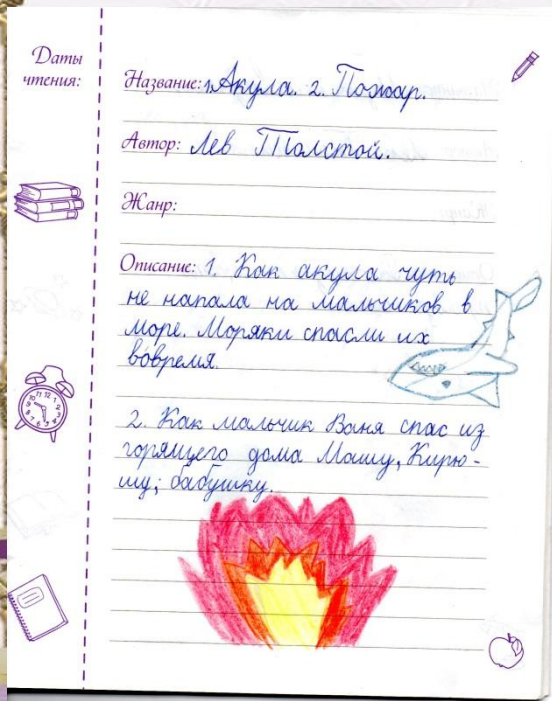 Даты
чтения:
Название: 1. Акула. 2. Пожар.
Автор: Лев Толстой.
Жанр:
Описание: 1. Как акула чуть
не напала на мальчиков в
море. Моряки спасли их
вовремя.
2. Как мальчик Ваня спас из
горящего дома Машу, Кирю-
шу, бабушку.